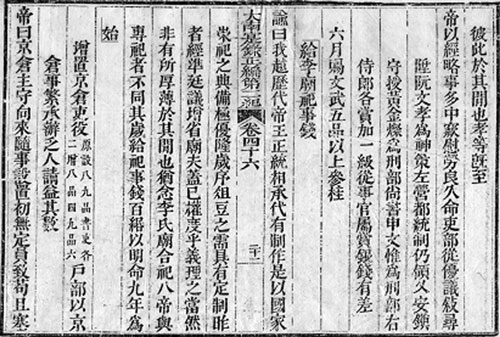 彼此於其間也孝等既至
帝以經略事多中窾慰勞良久命吏部從優議敘尋
陞阮文孝為神策左營都統制仍領久安鎮
守授黃金燦為刑部尚書申文惟為刑部右
侍郎各賞加一級從事官屬賞銀錢有差
六月賜文武五品以上參桂
給李廟祀事錢
諭曰我越歷代帝王正統相承代有制作是以國家
大南寔錄正編第二紀 卷四十六
崇祀之典備極優隆歲序俎豆之需具有定制昨
者經準廷議增省廟夫蓋已權度乎義理之當然
非有所厚薄於其間也猶念李氏廟合祀八帝與
專祀者不同其歲給祀事錢百緡以明命九年為
始
增置京倉吏役 原設八九品書吏各二增八品四九品六 戶部以京
倉事繁承辦之人請益其數
帝曰京倉主守向來隨事設置初無定員致苟且塞